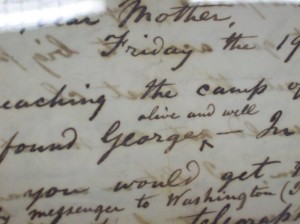 Dear Mother,
Friday the 19
reaching the camp of
alive and well
found George — In
you would get t
messenger to Washington (